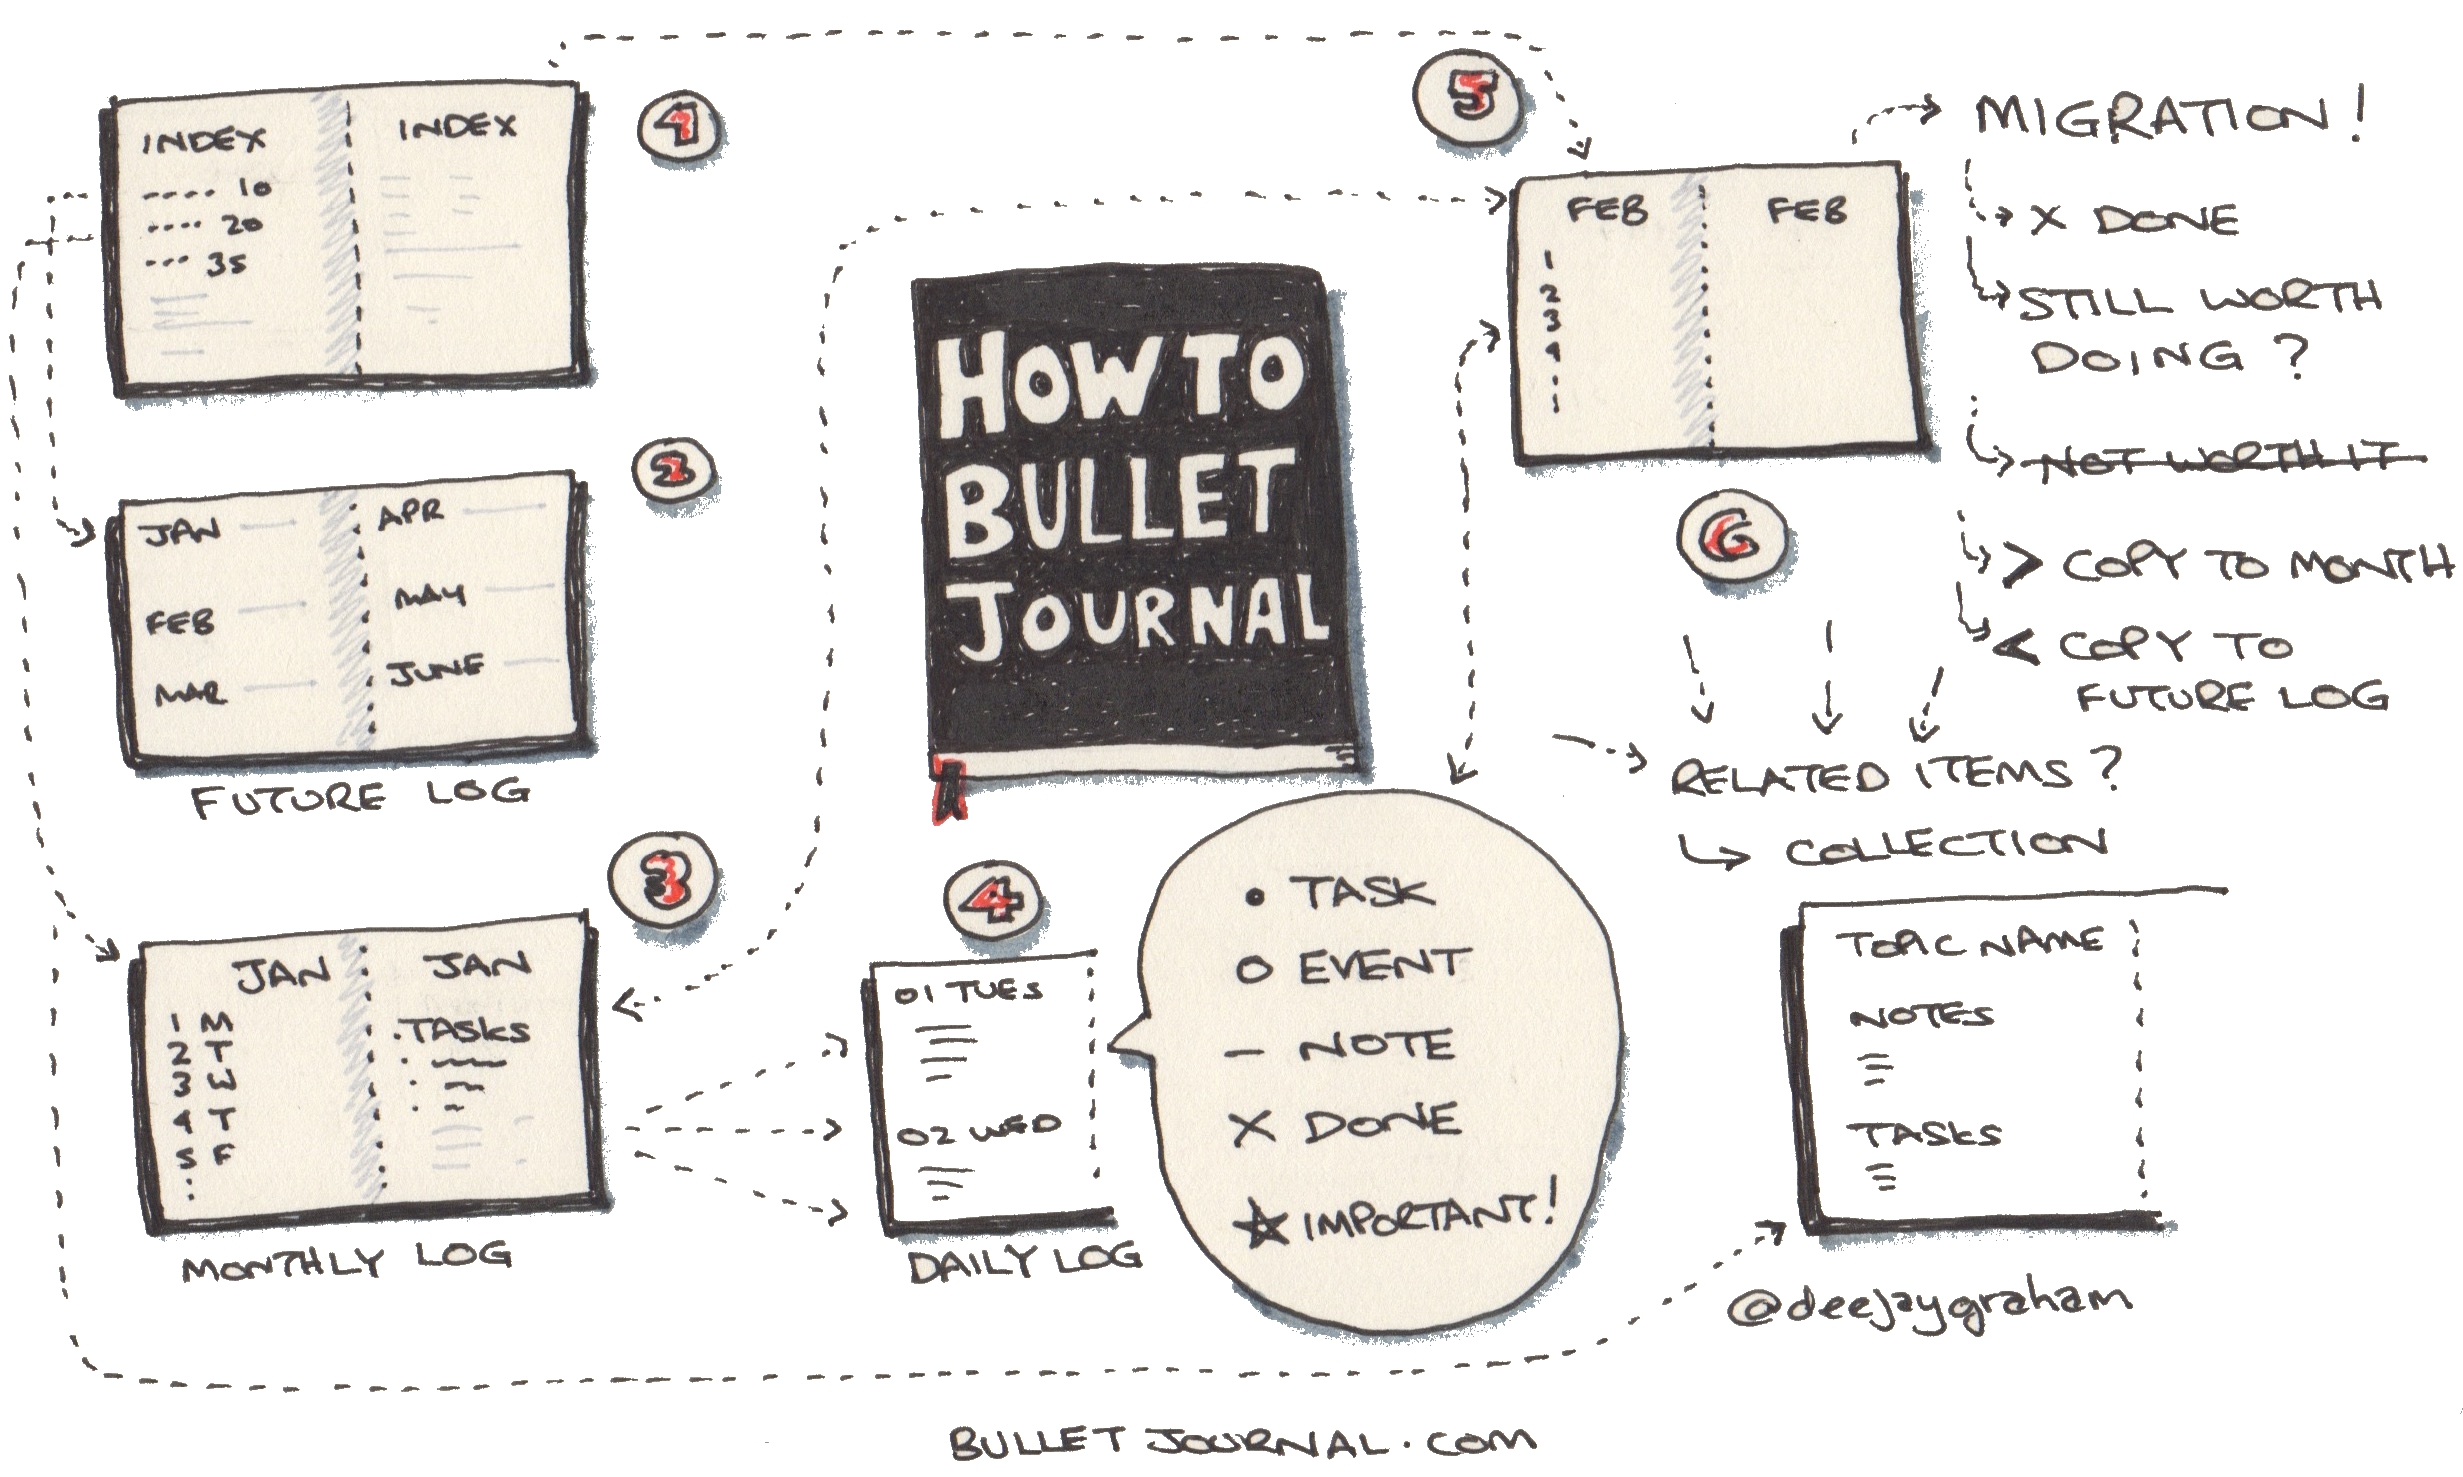 1
INDEX
---- 10
---- 20
--- 35
INDEX
2
JAN
FEB
MAR
APR
MAY
JUNE
FUTURE LOG
3
JAN
1 M
2 T
3 W
4 T
5 F
JAN
• TASKS
MONTHLY LOG
HOW TO
BULLET
JOURNAL
4
01 TUES
02 WED
DAILY LOG
• TASK
O EVENT
– NOTE
X DONE
☆ IMPORTANT!
5
FEB
1
2
3
4
FEB
MIGRATION!
X DONE
STILL WORTH
DOING?
NOT WORTH IT
> COPY TO MONTH
< COPY TO
FUTURE LOG
6
RELATED ITEMS?
↳ COLLECTION
TOPIC NAME
NOTES
TASKS
@deejaygraham
BULLETJOURNAL.COM